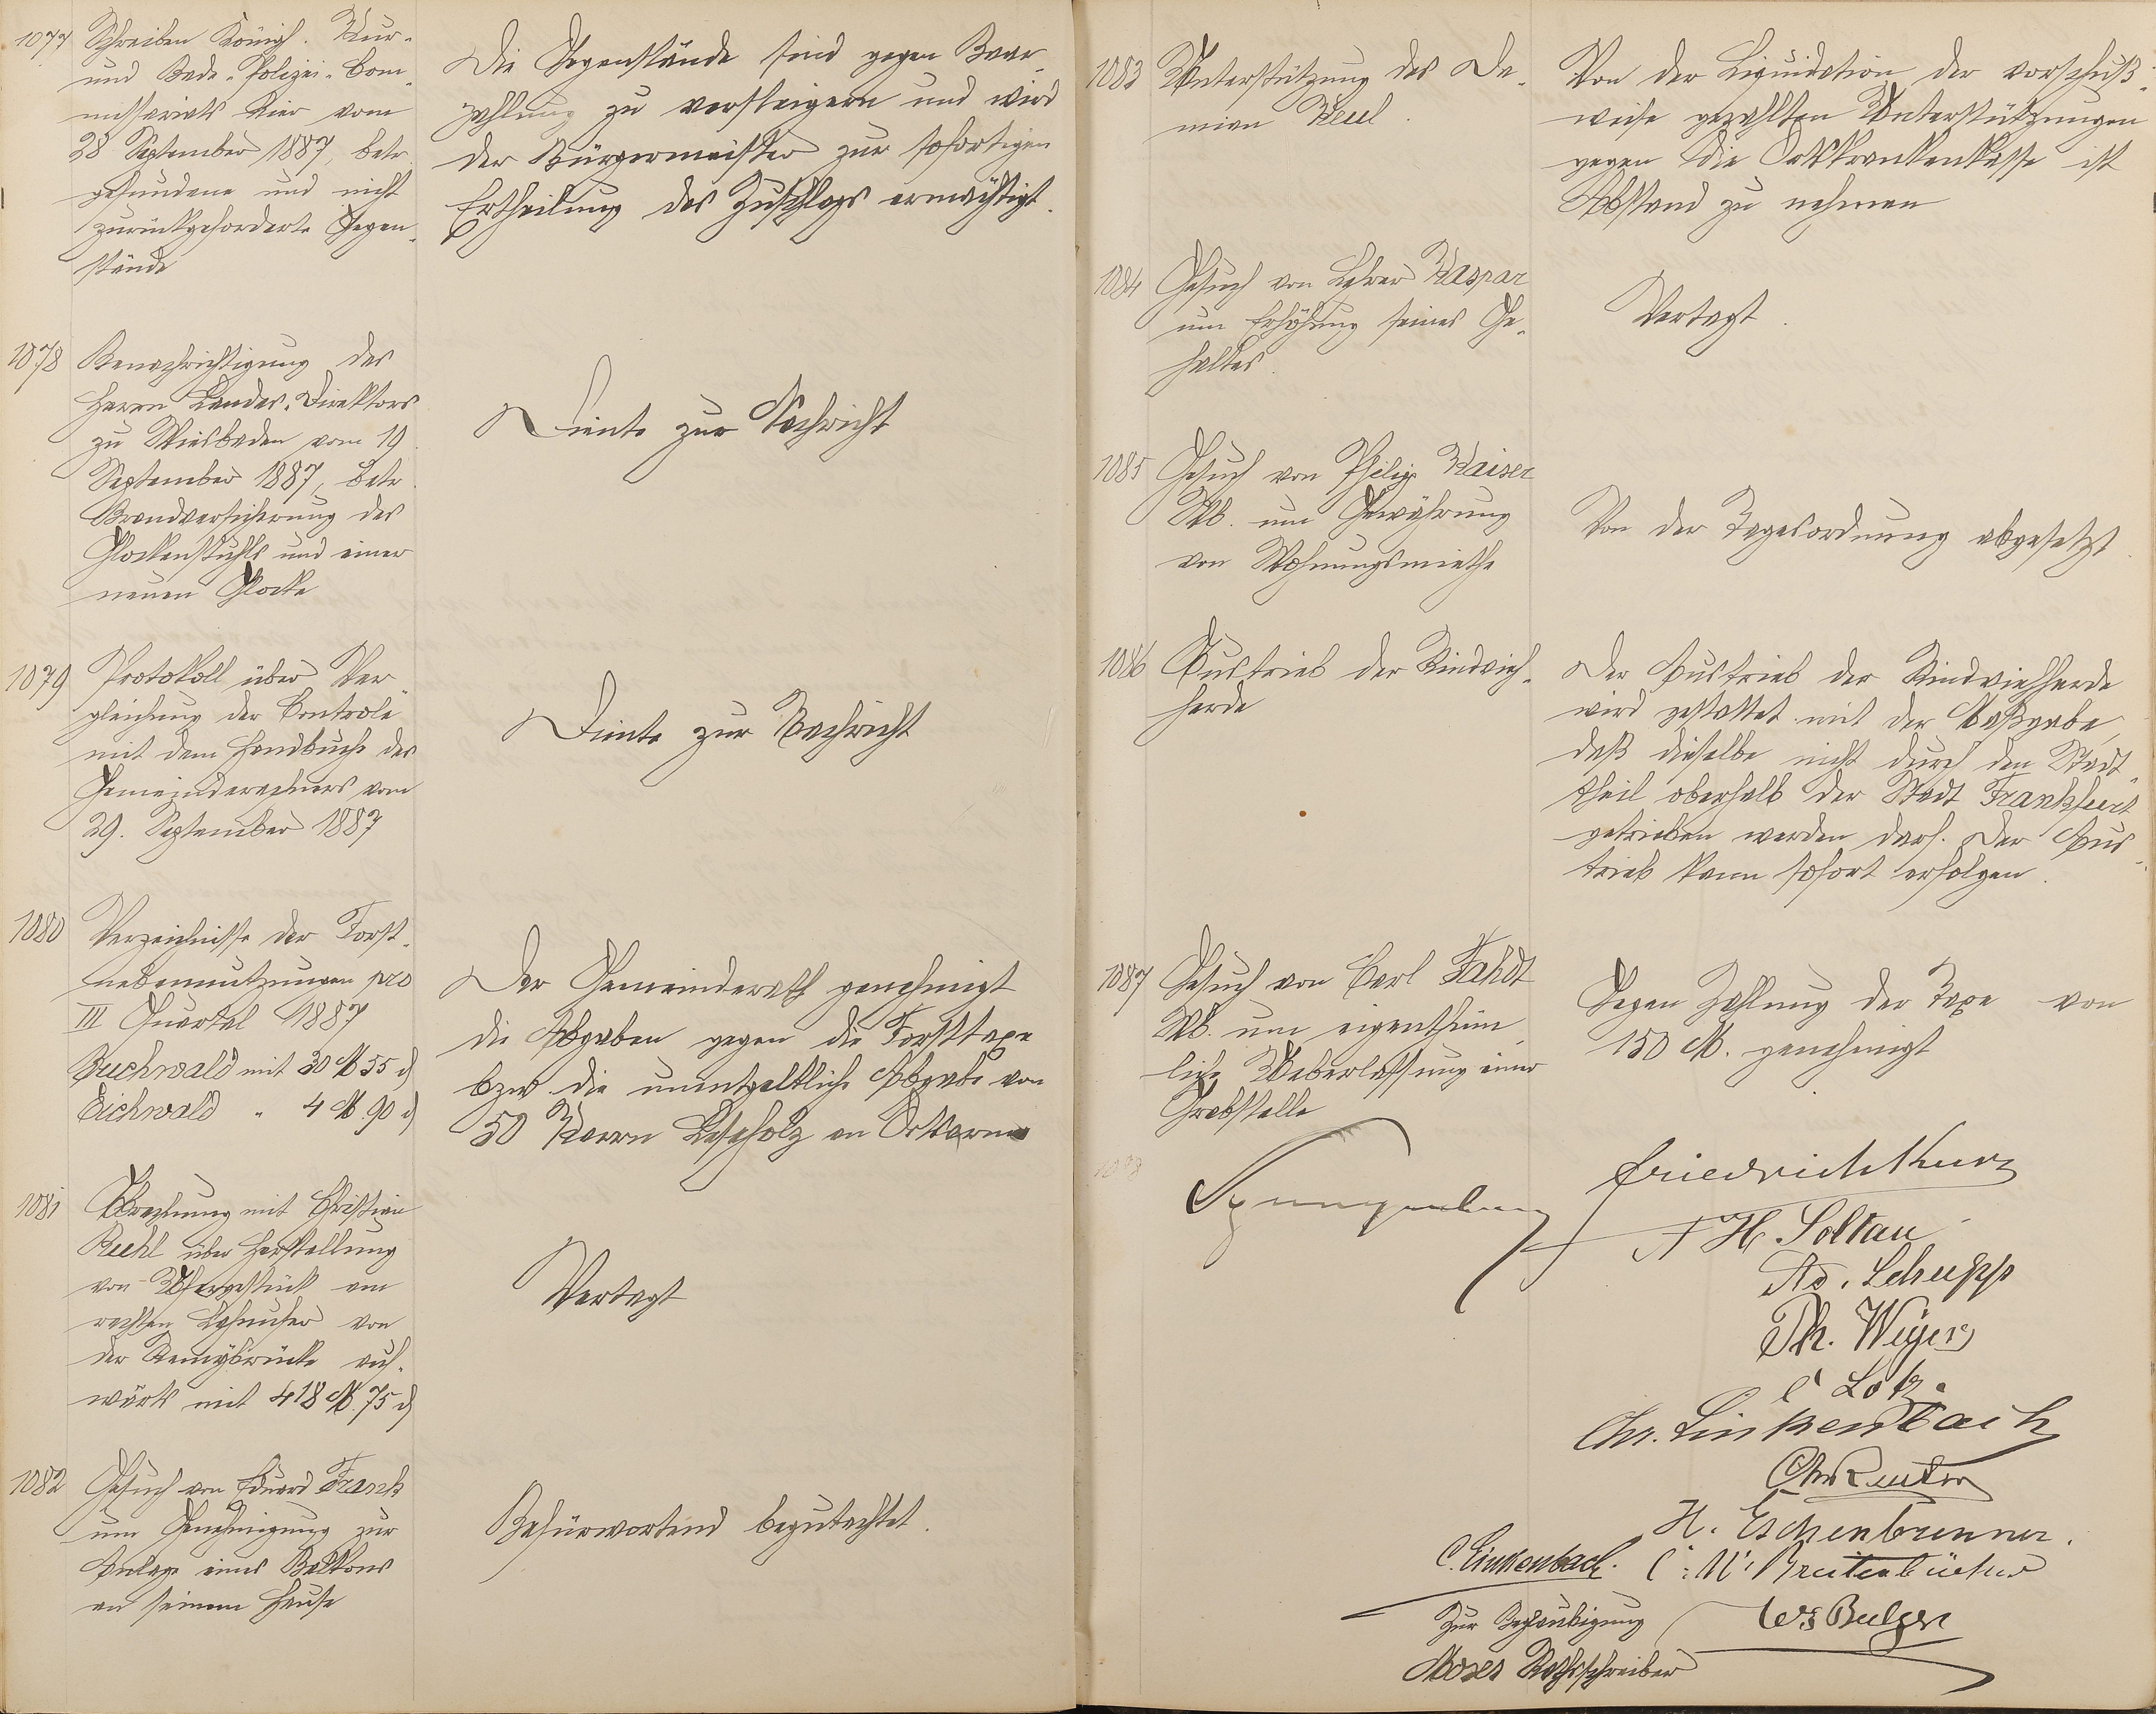 1077 Schreiben Königl. Kur-
und Bade-Polizei-Com-
missariats hier vom
28 September 1887, betr.
gefundene und nicht
zurückgeforderte Gegen-
stände
Die Gegenstände sind gegen Baar-
zahlung zu versteigern und wird
der Bürgermeister zur sofortigen
Ertheilung des Zuschlags ermächtigt.
1078 Benachrichtigung des
Herrn Landes-Direktors
zu Wiesbaden vom 19
September 1887, betr.
Brandversicherung des
Glockenstuhls und einer
neuen Glocke
Diente zur Nachricht
1079 Protokoll über Ver-
gleichung der Controle
mit dem Handbuche des
Gemeinderechners vom
29. September 1887
Diente zur Nachricht
1080 Verzeichnisse der Forst-
nebennutzungen pro
III Quartal 1887
Buchwald mit 30 M 55 d
Eichwald " 4 M. 90 d
Der Gemeinderath genehmigt
die Abgaben gegen die Forsttaxe
bzw. die unentgeltliche Abgabe von
50 Karrn Leseholz an Ortsarme
1081 Abrechnung mit Christian
Buhl über Herstellung
von Ufergestück am
rechten Lahnufer von
der Remybrücke auf-
wärts mit 418 M. 75 d
Vertagt
1082 Gesuch von Eduard Frank
um Genehmigung zur
Anlage eines Balkons
an seinem Hause
Befürwortend begutachtet.
1083 Unterstützung des Da-
mian Keul.
Von der Liquidation der vorschuß-
weise gezahlten Unterstützungen
gegen die Ortskrankenkasse ist
Abstand zu nehmen
1084 Gesuch von Lehrer Kaspar
um Erhöhung seines Ge-
haltes.
Vertagt.
1085 Gesuch von Philipp Kaiser
Wb. um Gewährung
von Wohnungsmiethe
Von der Tagesordnung abgesetzt.
1086 Austrieb der Rindvieh-
herde
Der Austrieb der Rindviehherde
wird gestattet mit der Maßgabe,
daß dieselbe nicht durch den Stadt-
theil oberhalb der Stadt Frankfurt
getrieben werden darf. Der Aus-
trieb kann sofort erfolgen.
1087 Gesuch von Carl Fahdt
Wb. um eigenthüm-
liche Ueberlassung einer
Grabstelle
Gegen Zahlung der Taxe von
150 M. genehmigt
Friedrich Kurz
A H. Soltau
Ad. Schupp
Ph. Weyers
C Lotz.
Chr. Linkenbach
Chr Reuter
H. Eschenbrenner.
C. Linkenbach. C. W. Breitenbücher
Zur Beglaubigung
Moses Rathsschreiber